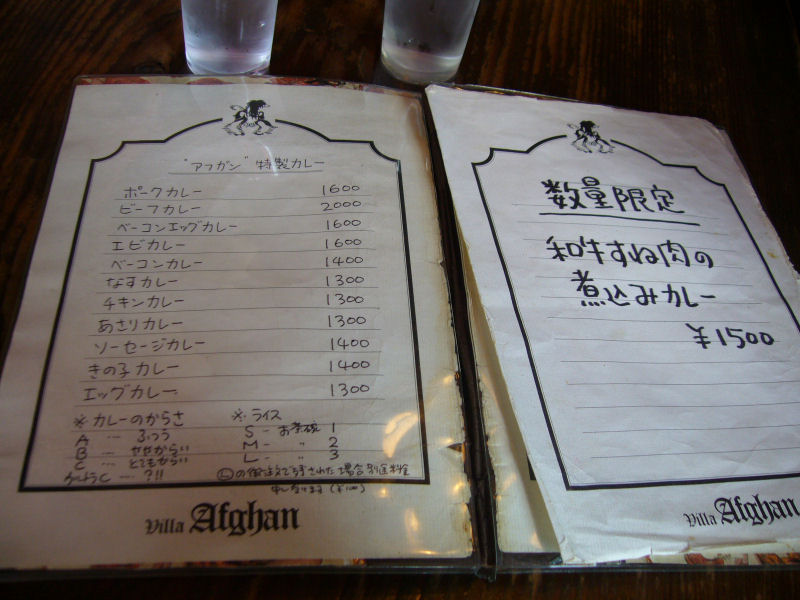 "アフガン" 特製カレー
ポークカレー 1600
ビーフカレー 2000
ベーコンエッグカレー 1600
エビカレー 1600
ベーコンカレー 1400
なすカレー 1300
チキンカレー 1300
あさりカレー 1300
ソーセージカレー 1400
きの子カレー 1400
エッグカレー 1300
※カレーのからさ
A … ふつう
B … ややからい
C … とてもからい
… ?!!
※ライス
S - お茶碗 1
M - 〃 2
L - 〃 3
Ⓛの御注文で残された場合別途料金
Villa Afghan
数量限定
和牛すね肉の
煮込みカレー
¥1500
Villa Afghan